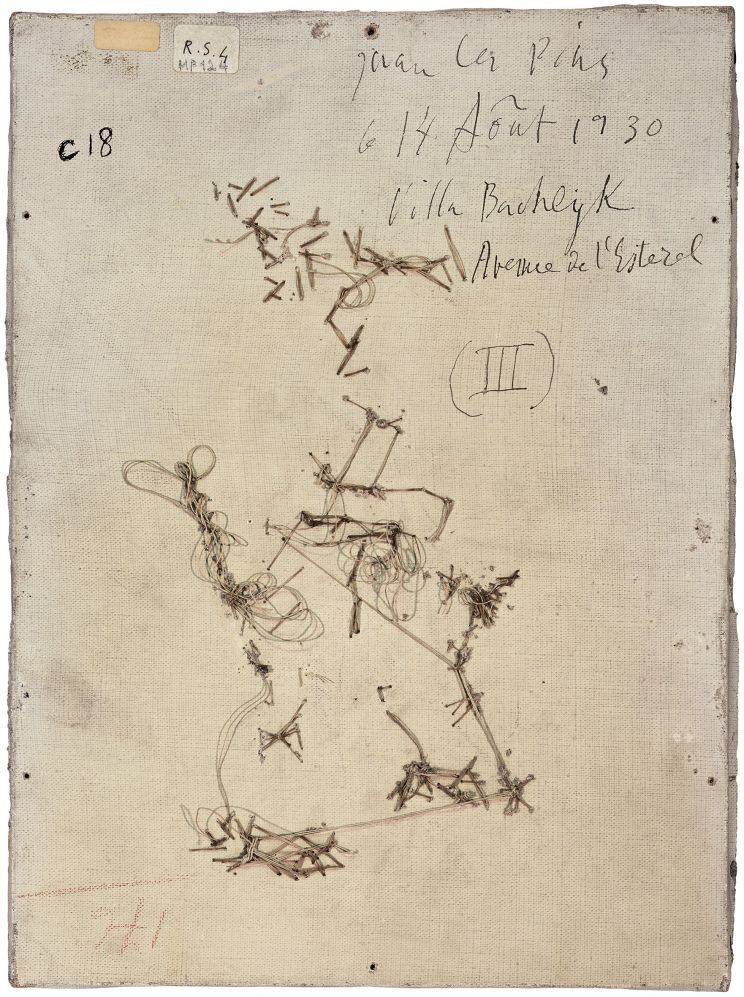 R.S.4
MP124
Juan les Pins
le 14 Août 1930
Villa Bachlyk
Avenue de l'Esterel
C18
(III)